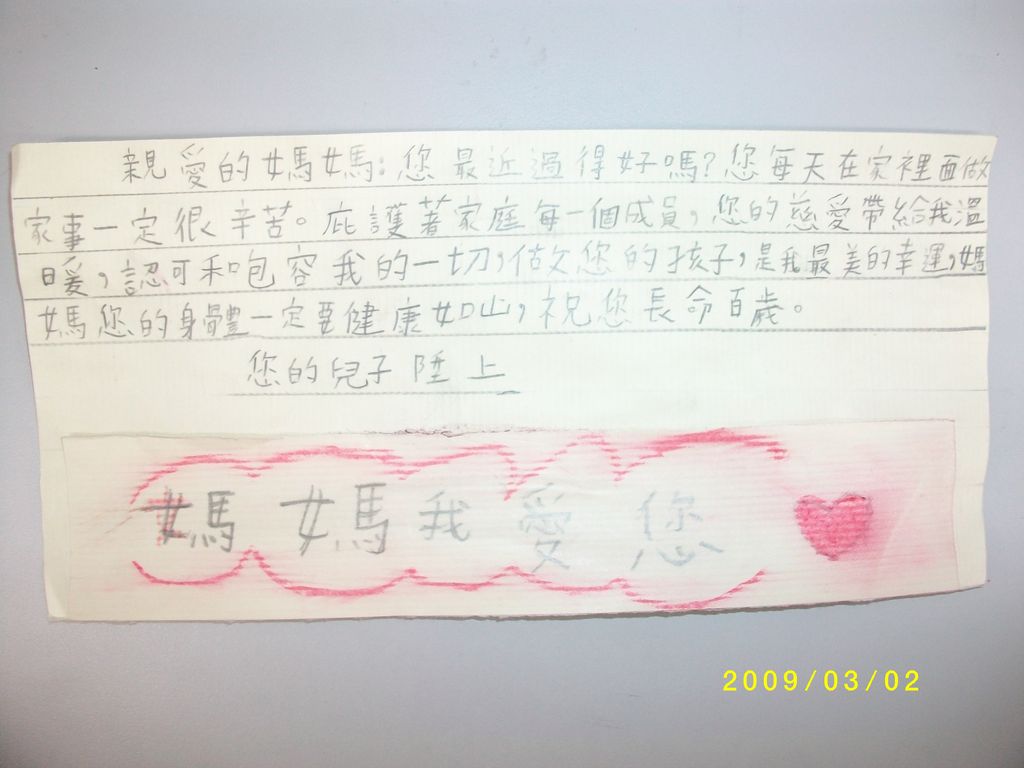 親愛的媽媽:您最近過得好嗎?您每天在家裡面做
家事一定很辛苦。庇護著家庭每一個成員,您的慈愛帶給我溫
暖,認可和包容我的一切,做您的孩子,是我最美的幸運,媽
媽您的身體一定要健康如山,祝您長命百歲。
您的兒子陲上
媽媽我愛您
2009/03/02